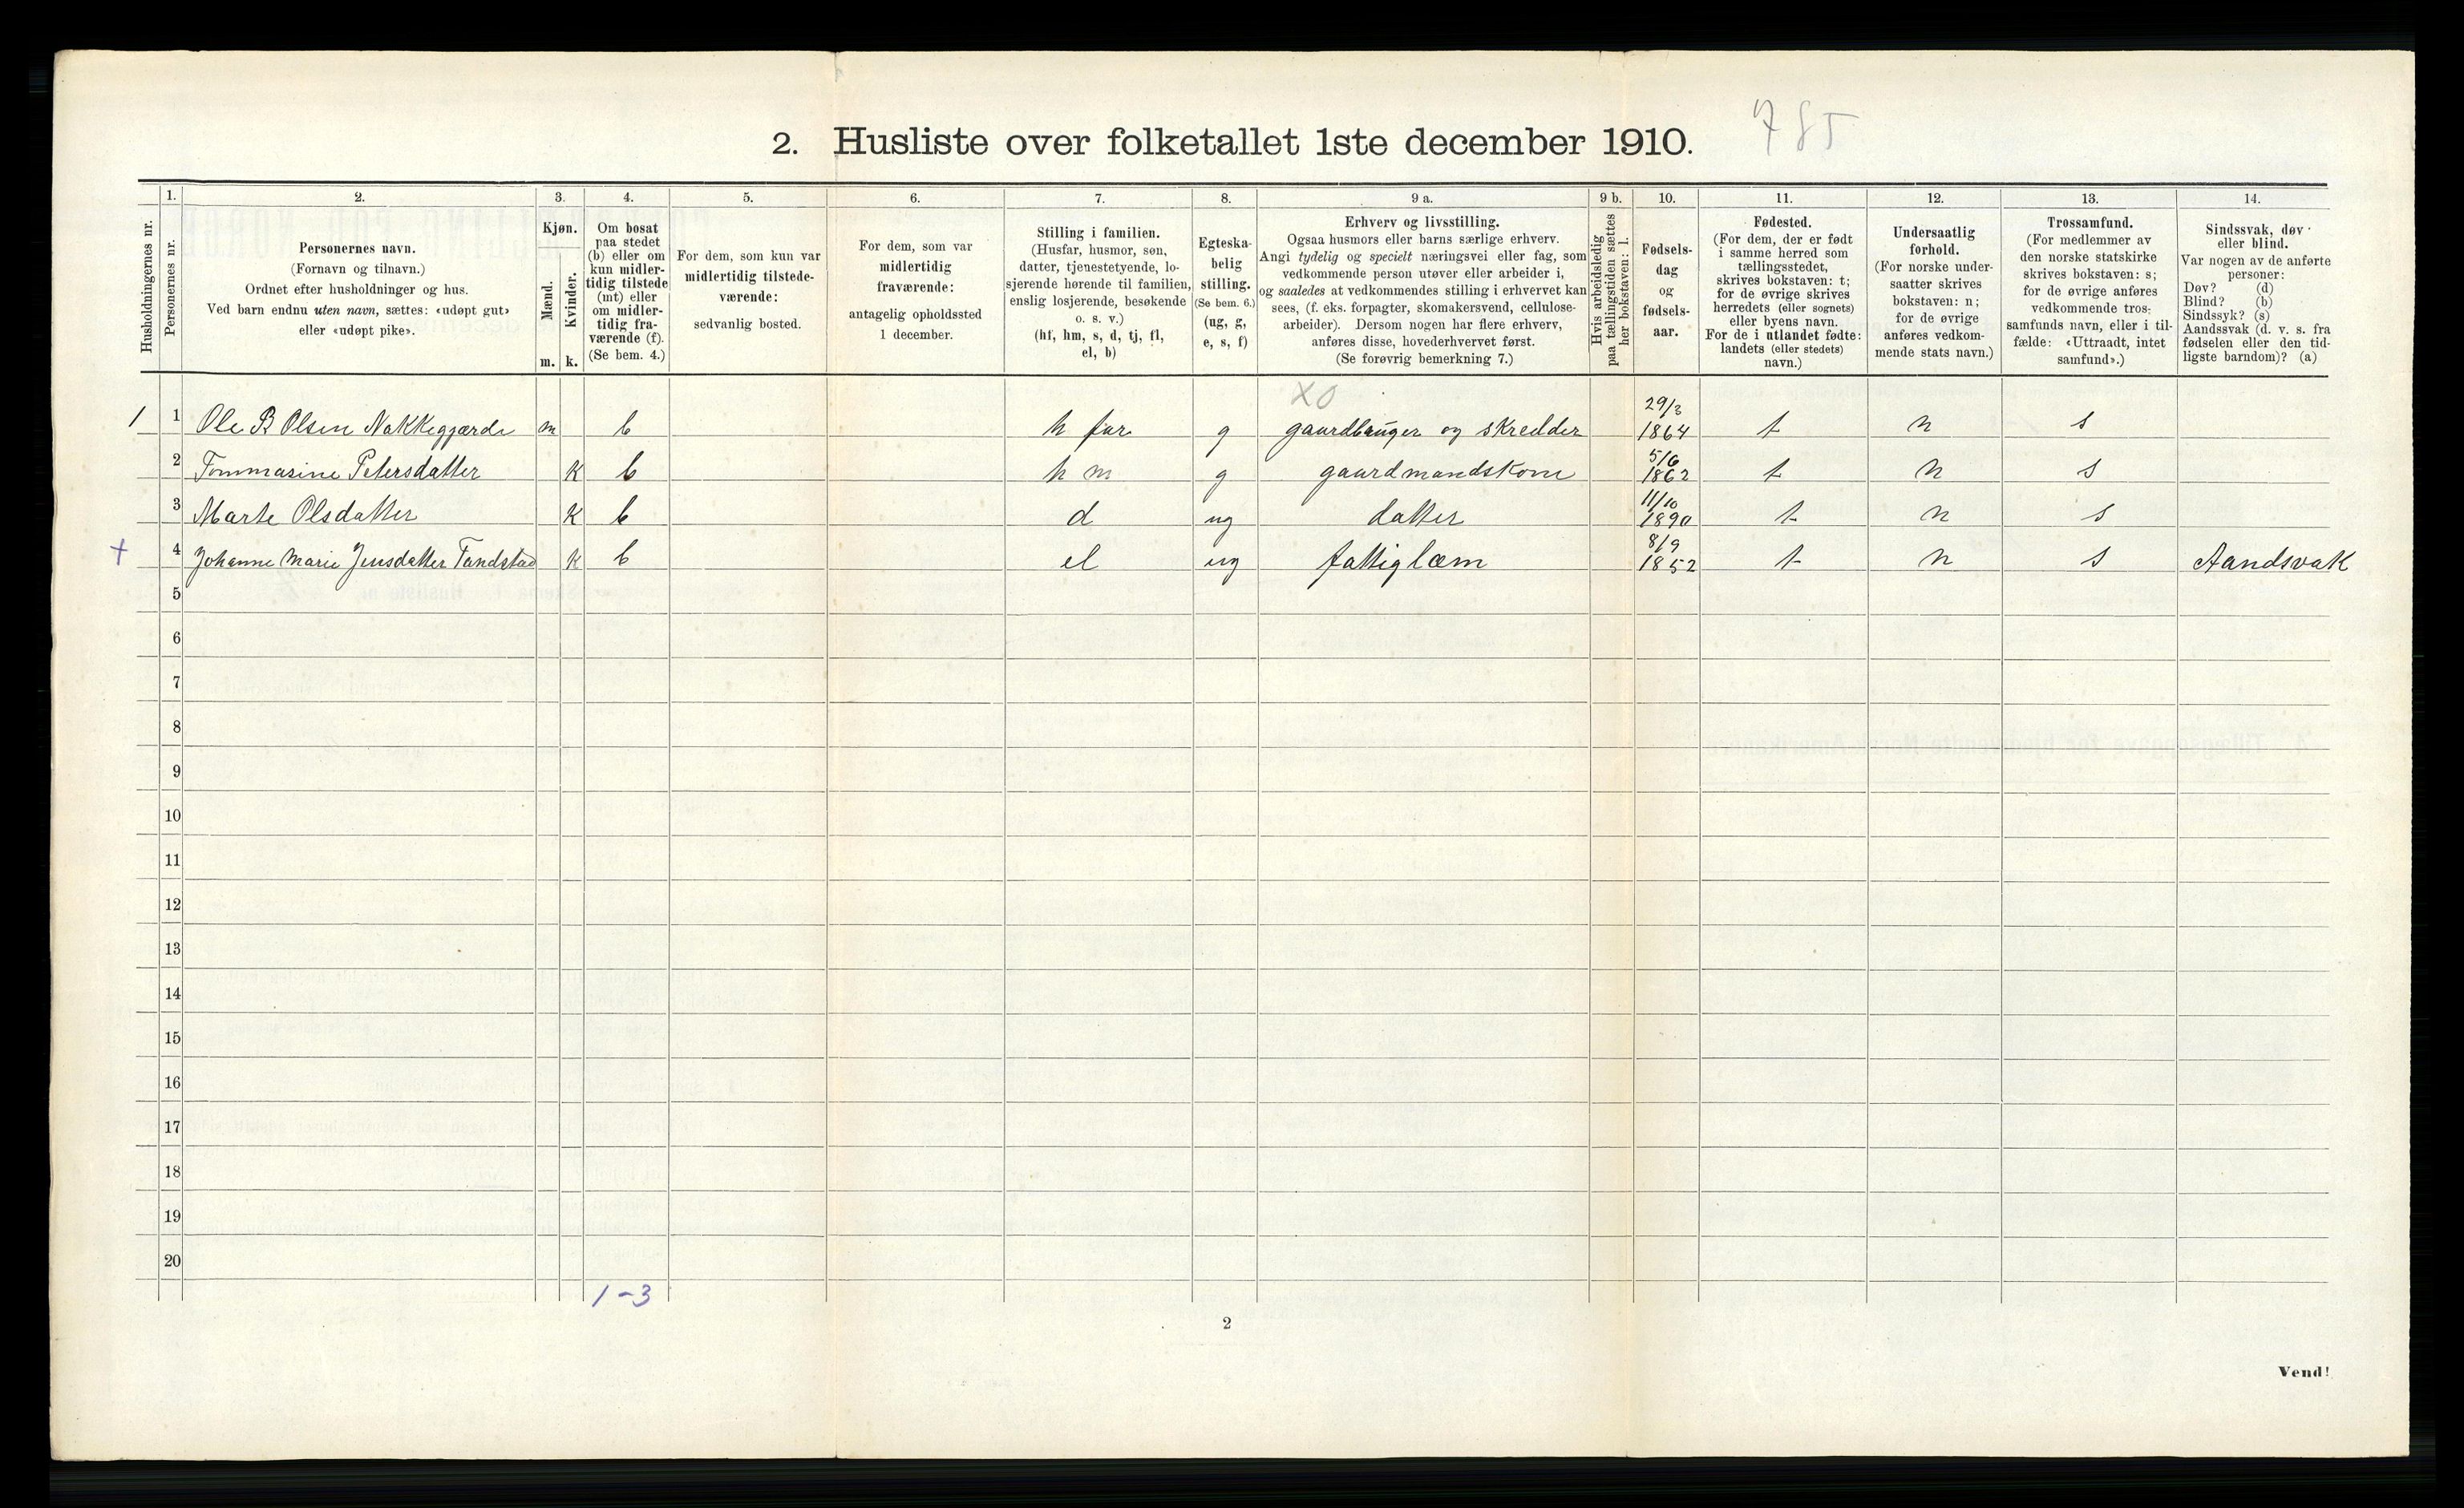 2. Husliste over folketallet 1ste december 1910. 785
Husholdningernes nr.
1.
Personernes nr.
2.
Personernes navn.
(Fornavn og tilnavn.)
Ordnet efter husholdninger og hus.
Ved barn endnu uten navn, sættes: «udøpt gut»
eller «udøpt pike».
3.
Kjøn.
Mænd.
Kvinder.
m. k.
4.
Om bosat
paa stedet
(b) eller om
kun midler-
tidig tilstede
(mt) eller
om midler-
tidig fra-
værende (f).
(Se bem. 4.)
5.
For dem, som kun var
midlertidig tilstede-
værende:
sedvanlig bosted.
6.
For dem, som var
midlertidig
fraværende:
antagelig opholdssted
1 december.
7.
Stilling i familien.
(Husfar, husmor, søn,
datter, tjenestetyende, lo-
sjerende hørende til familien,
enslig losjerende, besøkende
o. s. v.)
(hf, hm, s, d, tj, fl,
el, b)
8.
Egteska-
belig
stilling.
(Se bem. 6.)
(ug, g,
e, s, f)
9 a.
Erhverv og livsstilling.
Ogsaa husmors eller barns særlige erhverv.
Angi tydelig og specielt næringsvei eller fag, som
vedkommende person utøver eller arbeider i,
og saaledes at vedkommendes stilling i erhvervet kan
sees, (f. eks. forpagter, skomakersvend, cellulose-
arbeider). Dersom nogen har flere erhverv,
anføres disse, hovederhvervet først.
(Se forøvrig bemerkning 7.)
9 b.
Hvis arbeidsledig
paa tællingstiden sættes
her bokstaven: l.
10.
Fødsels-
dag
og
fødsels-
aar.
11.
Fødested.
(For dem, der er født
i samme herred som
tællingsstedet,
skrives bokstaven: t;
for de øvrige skrives
herredets (eller sognets)
eller byens navn.
For de i utlandet fødte:
landets (eller stedets)
navn.)
12.
Undersaatlig
forhold.
(For norske under-
saatter skrives
bokstaven: n;
for de øvrige
anføres vedkom-
mende stats navn.)
13.
Trossamfund.
(For medlemmer av
den norske statskirke
skrives bokstaven: s;
for de øvrige anføres
vedkommende tros-
samfunds navn, eller i til-
fælde: «Uttraadt, intet
samfund».)
14.
Sindssvak, døv
eller blind.
Var nogen av de anførte
personer:
Døv? (d)
Blind? (b)
Sindssyk? (s)
Aandssvak (d. v. s. fra
fødselen eller den tid-
ligste barndom)? (a)
XO
1 1 Ole B Olsen Nakkegjærde m b h far g gaardbruger og skredder 29/3 1864 t n s
2 Tommasine Petersdatter K b h m g gaardmandskone 5/6 1862 t n s
3 Marte Olsdatter K b d ug datter 11/10 1890 t n s
+ 4 Johanne Marie Jensdatter Tandstad K b el ug fattiglæm 8/9 1852 t n s Aandsvak
5
6
7
8
9
10
11
12
13
14
15
16
17
18
19
20
1-3
2
Vend!